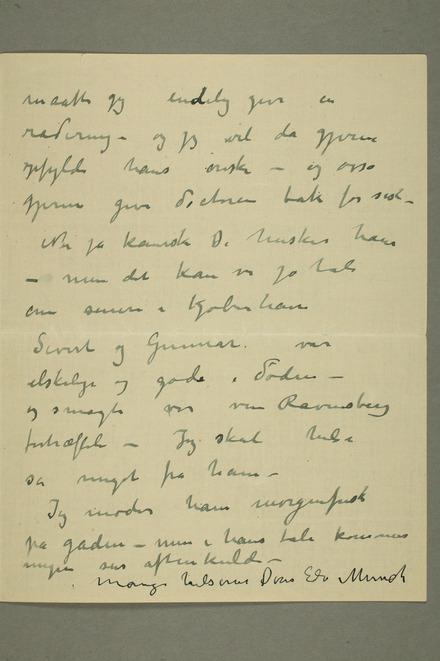 maatte jeg endelig give en
radering – og jeg vil da gjerne
opfylde hans ønske – og ogsaa
gjerne give doctoren tak for sidst –
ja kanske De husker ham
– men det kan vi jo tale
om senere i Kjøbenhavn
Sivert og Gunnar. var
elskelige og gode i Döden –
og smagte vor ven Ravensberg
fortræffelig – Jeg skal hilse
saa meget fra ham –
Jeg møder ham morgenfrisk
på gaden – men i hans tale kommer
ingen aftenkulde –
Mange hilsener Deres Edv Munch